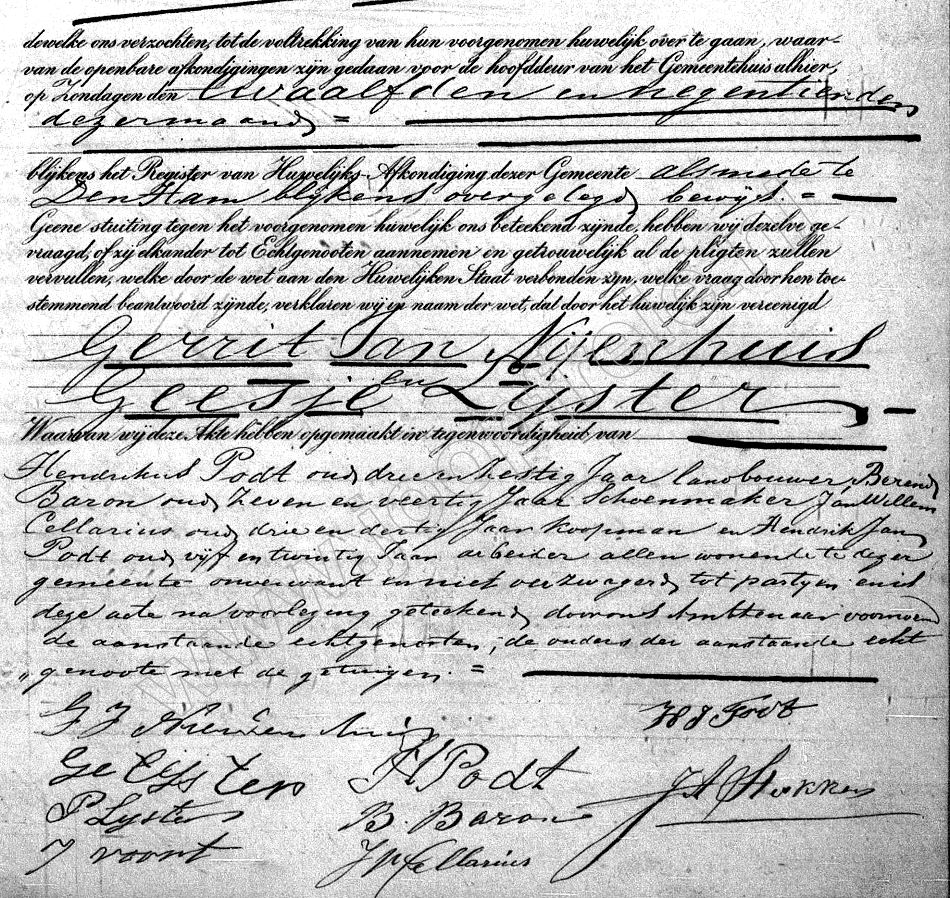 dewelke ons verzochten, tot de voltrekking van hun voorgenomen huwelijk over te gaan, waar-
van de openbare afkondigingen zijn gedaan voor de hoofddeur van het Gemeentehuis alhier,
op Zondagen den twaalfden en negentienden
dezer maand =
blijkens het Register van Huwelijks-Afkondiging dezer Gemeente alsmede te
Den Ham blijkens overgelegd bewijs. =
Geene stuiting tegen het voorgenomen huwelijk ons beteekend zijnde, hebben wij dezelve ge-
vraagd, of zij elkander tot Echtgenooten aannemen en getrouwelijk al de pligten zullen
vervullen, welke door de wet aan den Huwelijken Staat verbonden zijn, welke vraag door hen toe-
stemmend beantwoord zijnde, verklaren wij in naam der wet, dat door het huwelijk zijn vereenigd
Gerrit Jan Nijenhuis
en
Geesje Lijster
Waarvan wij deze Akte hebben opgemaakt in tegenwoordigheid van
Hendrikus Podt oud drie en zestig Jaar landbouwer Berend
Baron oud zeven en veertig Jaar Schoenmaker Jan Willem
Cellarius oud drie en dertig Jaar Koopman en Hendrik Jan
Podt oud vijf en twintig Jaar arbeider allen wonende te dezer
gemeente onverwant en niet verzwagerd tot partyen en is
deze acte na voorlezing geteekend door ons Ambtenaar voornoemd
de aanstaande echtgenooten, de ouders der aanstaande echt
„genoote met de getuigen. =
G J Nieuwenhuis
H J Podt
Ge Lijster
H Podt
P Lyster
B. Baron
J voort
J W Cellarius